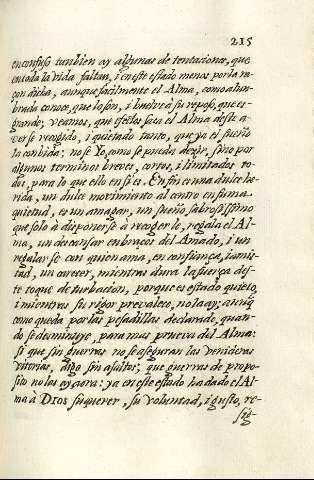 215
enconfuso tanbien ay algunas de tentaciones, que
en toda la vida faltan, i en este estado menos por la ra-
çon dicha, aunque facilmente el Alma, como alum-
brada conoce, que lo son, i buelve à su reposo, que es
grande; veamos, que efectos saca el Alma deste a
verse recogido, i quietado tanto, que ya el sueño
la conbida; no sè Yo, como se pueda deçir, sino por
algunos terminos breves, cortos, i limitados to-
dos, para lo que ello en si es. En fin es una dulce he-
rida, un dulce movimiento al centro en suma
quietud, es un amagar, un sueño sabrosissimo
que solo à disponerse à recogerle, regala el Al-
ma, un descansar en braços del Amado, i un
regalarse con quien ama, en confiança, i amis-
tad, un carecer, mientras dura la fuerça des-
te toque de turbacion, porque es estado quieto,
i mientras su rigor prevalece, no la ay; aunq
como queda por las pesadillas declarado, quan-
do se desminuye, para mas prueva del Alma:
si que sin guerras no se aseguran las venideras
vitorias, digo sin asaltos; que guerras de propo-
sito no las ay agora: ya en este estado ha dado el Al-
ma à Dios su querer, su voluntad, i gusto, re-
sig-